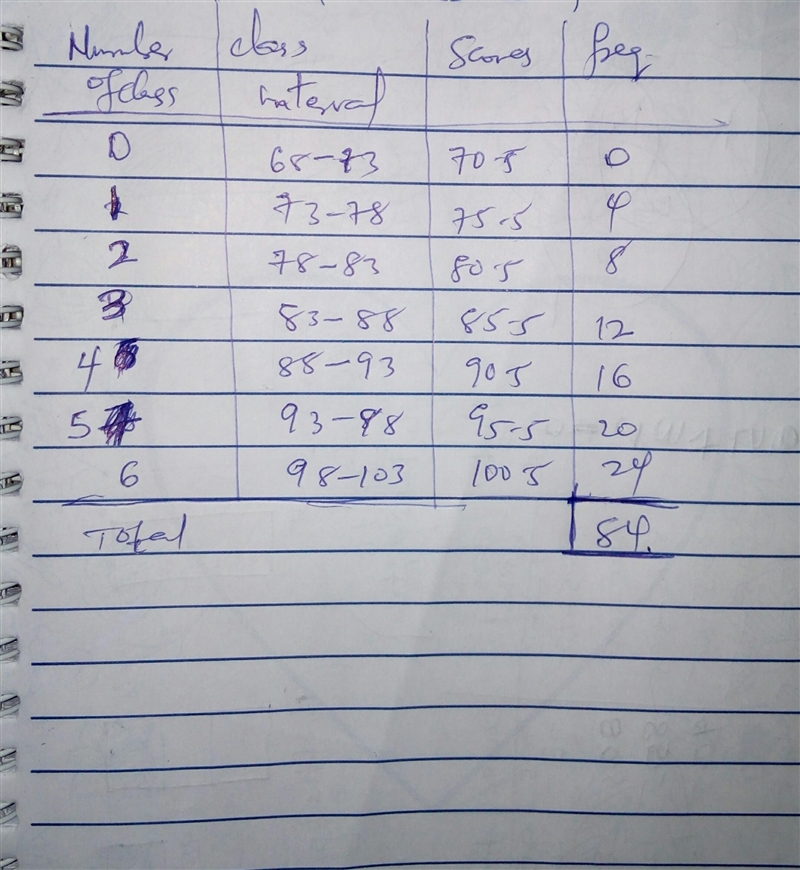 Number class Scores freq.
of class interval
0 68-73 70.5 0
1 73-78 75.5 4
2 78-83 80.5 8
3 83-88 85.5 12
4 88-93 90.5 16
5 93-98 95.5 20
6 98-103 100.5 24
Total 84.